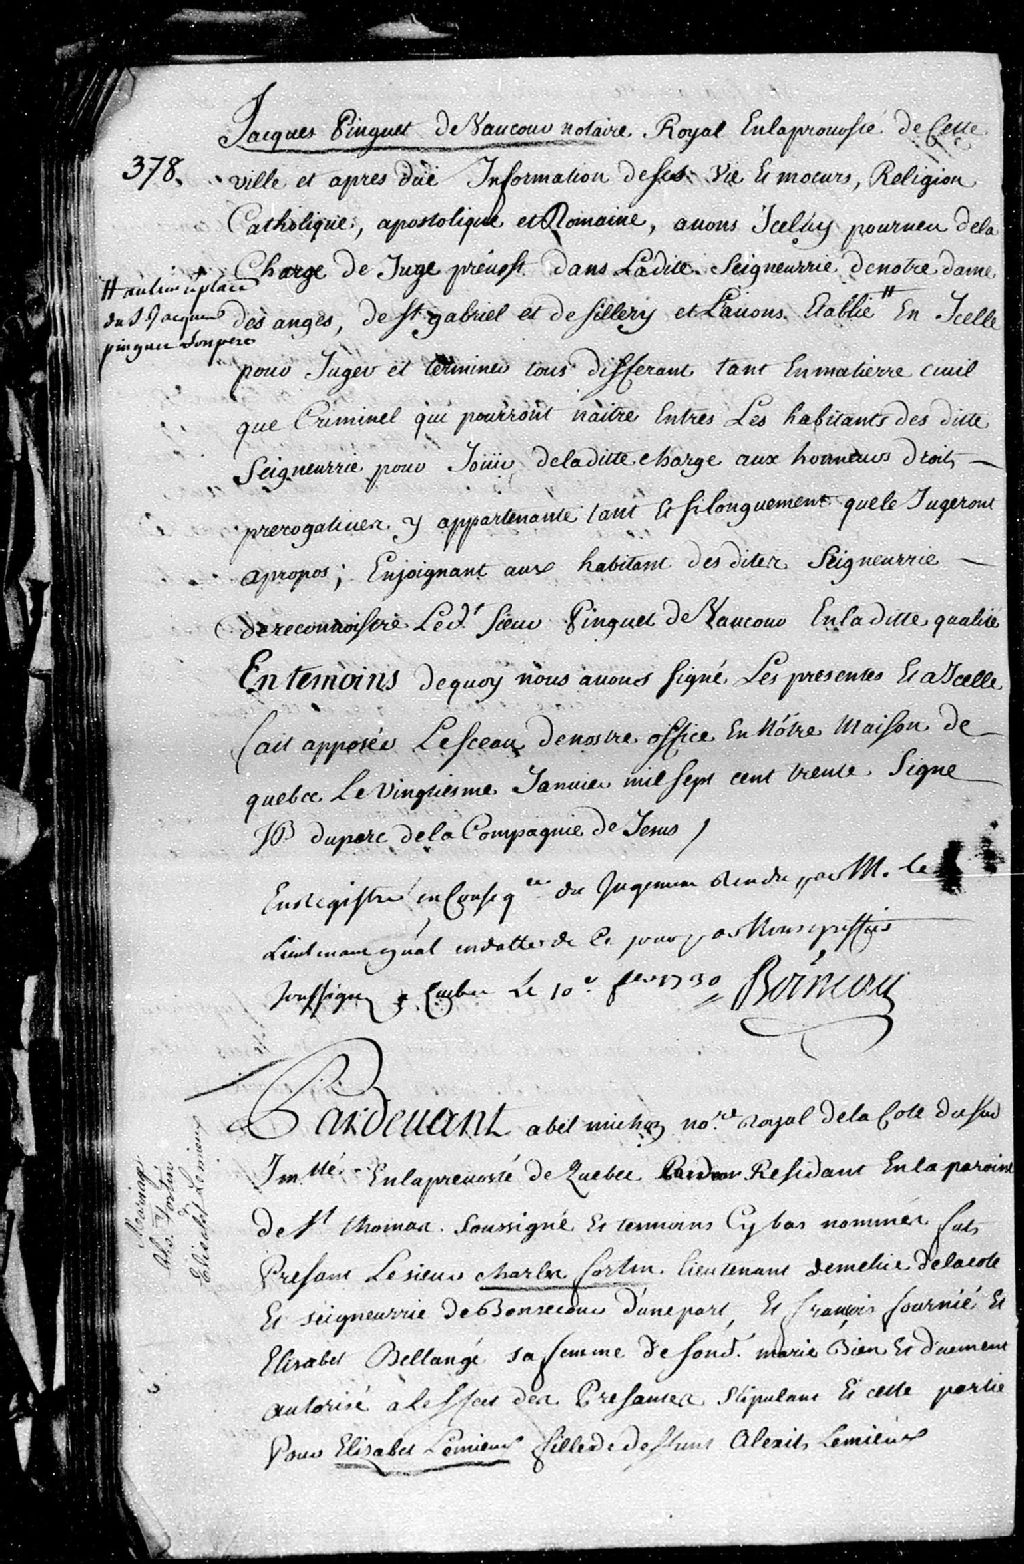 Jacques Pinguet de Vaucour notaire Royal Enlaprouosté de Cette
378.
ville et apres düe Information deses Vie Et moeurs, Religion
Catholique, apostolique et Romaine, auons Icelluy pourueu dela
Charge de Juge préuost dans Ladite Seigneurrie denotre dame
des anges, de St gabriel et de Sillery et Lauons Etablie # En Icelle
# au lieu et place
du S Jacques
pinguet Son pere
pour Juger et terminer tous differant tant Enmatierre ciuil
que Criminel qui pourront naitre Entres Les habitants des ditte
Seigneurrie pour Joüir deladitte charge aux honneurs droits
prerogatiues y appartenante tant Et silonguement quele Jugeront
apropos; Enjoignant aux habitant des dites Seigneurrie
dereconnoistre Ledt Sieur Pinguet de Vaucour Enla ditte qualité
En temoins dequoy nous auons signé Les presentes Et a Icelle
fait apposée Lesceau denostre office En Nôtre Maison de
quebec Le vingtiesme Januier mil sept cent trente Signe
JB duparc dela Compagnie de Jesus /
Enregistré en Conseqce du Jugement Rendu par M. Le
Lieutenant gnãl endatte de Ce jour par Nous greffier
Soussigné a Quebec Le 10e fer 1730 Boisseau
Pardeuant abel michon nore Royal dela Cote du Sud
Immlé Enlapreuosté de Quebec Residant Enla paroisse
de St thomas Soussigné Et temoins Cy bas nommés fut
Mariage
Chs. fortin
&
Elisabet Lemieux
Present Lesieur charles fortin lieutenant demelice delacote
Et seigneurrie de Bonsecour d'une part, Et françois fournié Et
Elisabet Bellangé sa femme de Sond. marie Bien Et duement
autorisé a Leffect des Presantes Stipulant Et cette partie
Pour Elisabet Lemieux fille dedeffunt Alexis Lemieux